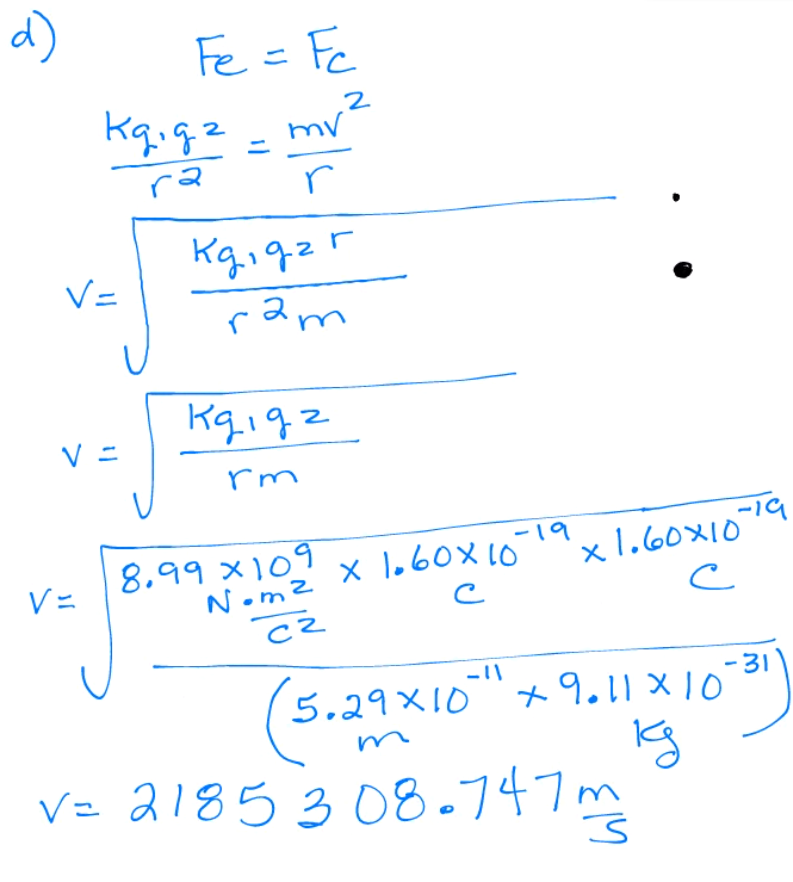 d)
Fe = Fc
kq₁q₂/r² = mv²/r
v = √(kq₁q₂r/r²m)
v = √(kq₁q₂/rm)
v = √(8.99 × 10⁹ N·m²/C² × 1.60 × 10⁻¹⁹ C × 1.60 × 10⁻¹⁹ C/(5.29 × 10⁻¹¹ m × 9.11 × 10⁻³¹ kg))
v = 2185308.747 m/s